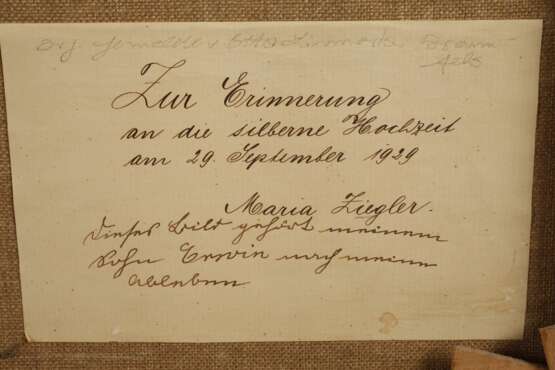 Org. Gemälde v. Otto
Zur Erinnerung
an die silberne Hochzeit
am 29. September 1929
Maria Ziegler.
Dieses Bild gehört meinem
Sohn Erwin nach meine
ableben